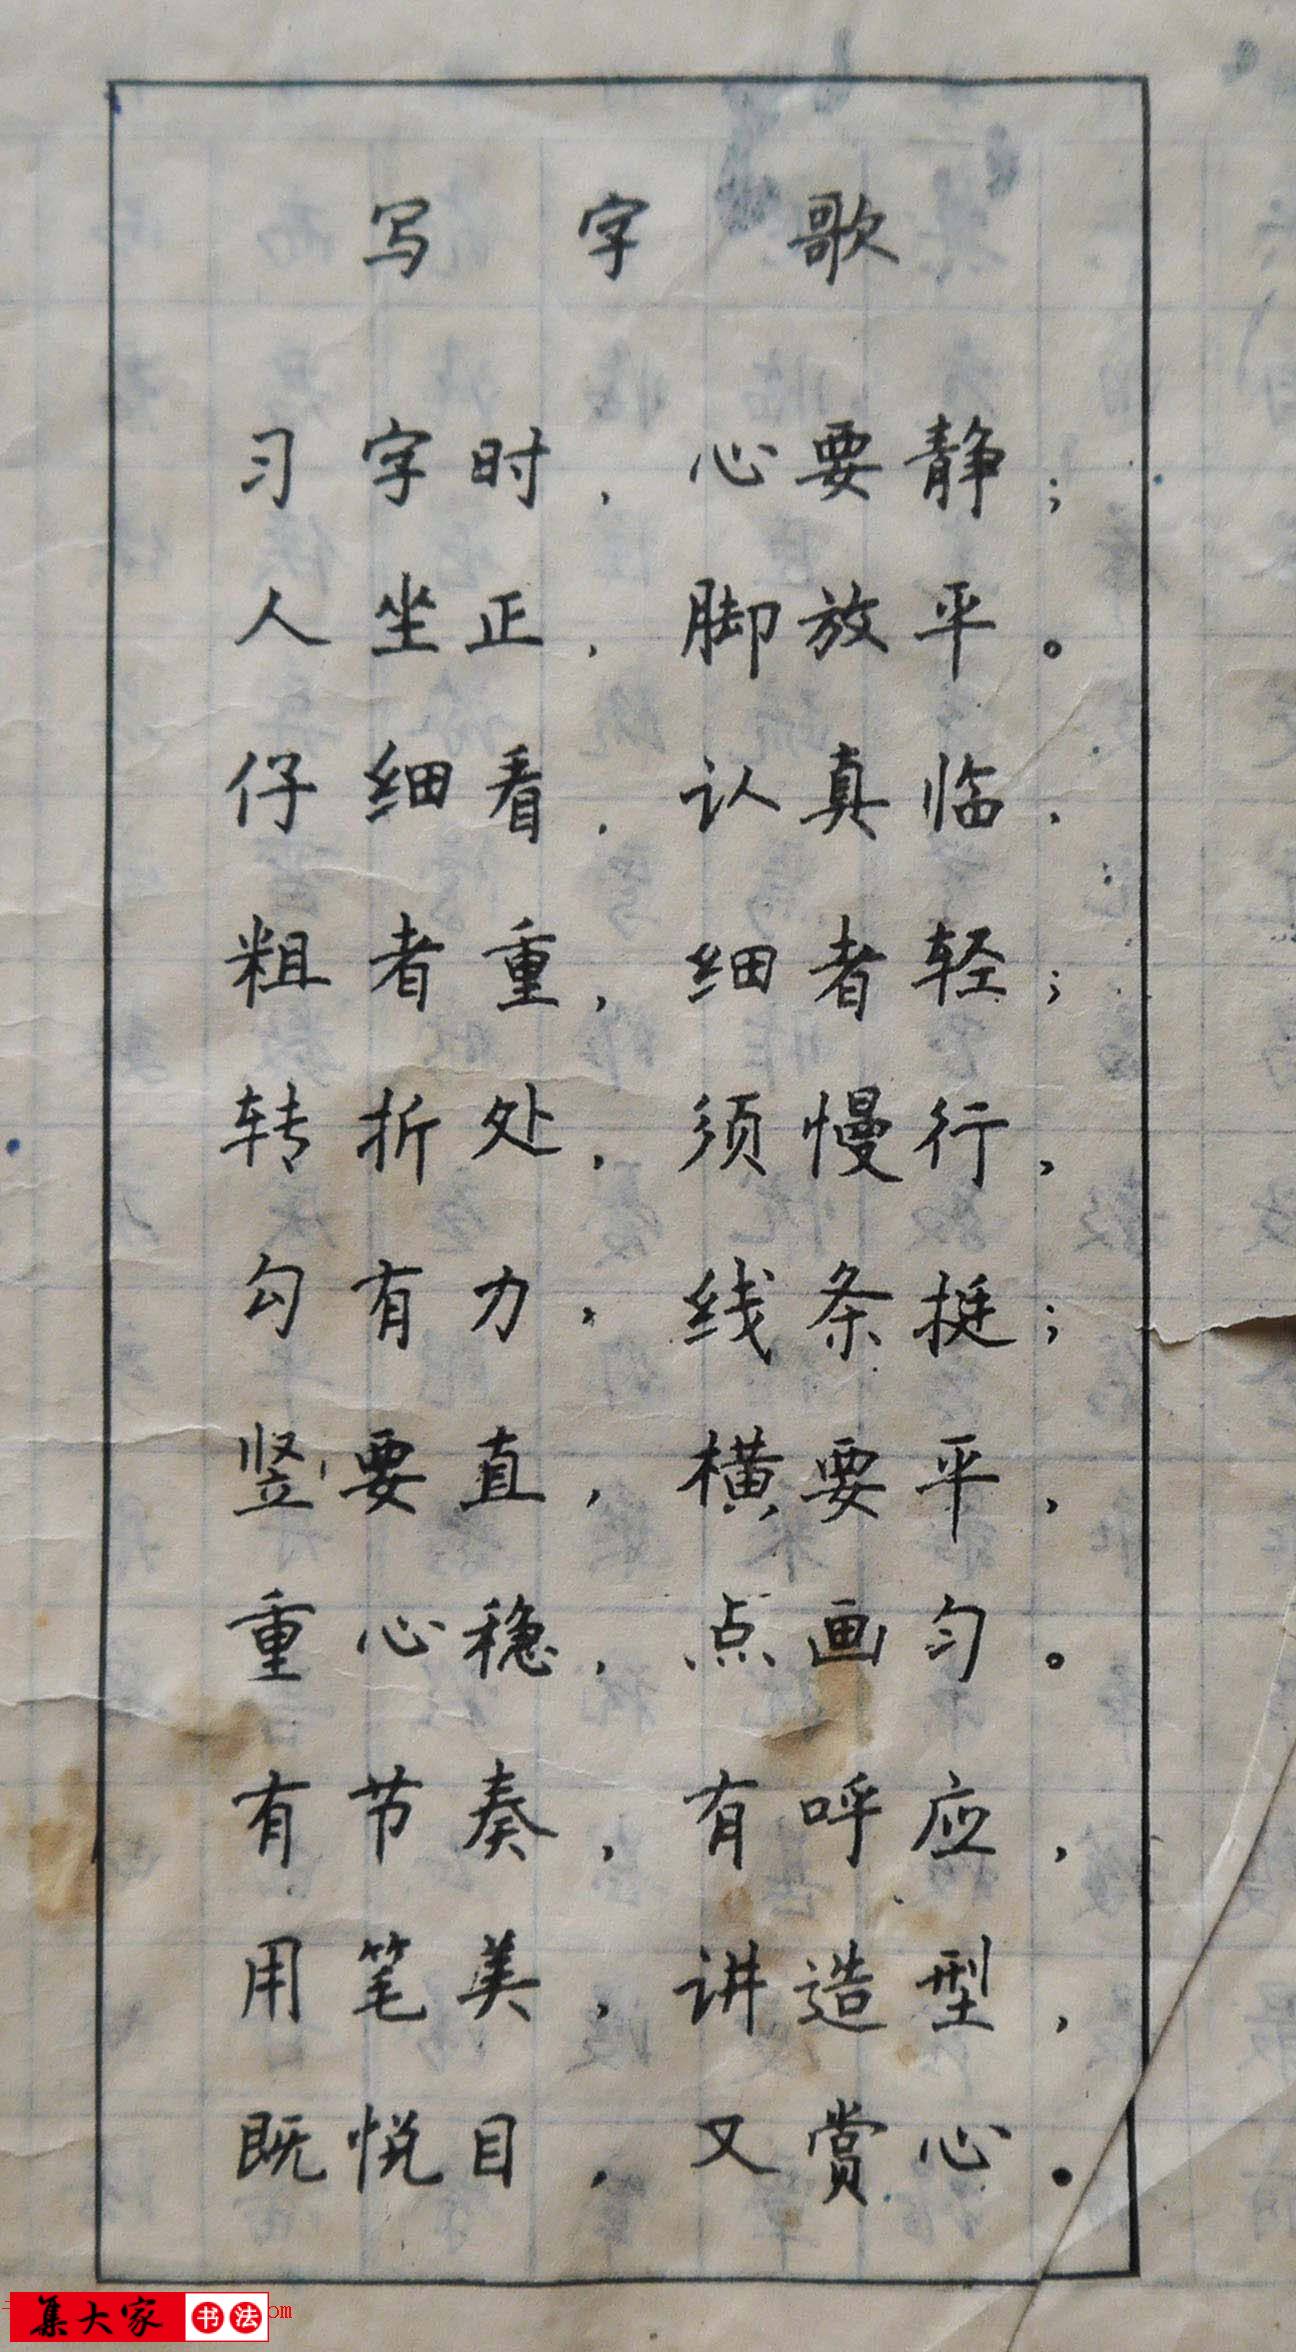 写字歌
习字时，心要静；
人坐正，脚放平。
仔细看，认真临，
粗者重，细者轻；
转折处，须慢行，
勾有力，线条挺；
竖要直，横要平，
重心稳，点画匀。
有节奏，有呼应，
用笔美，讲造型，
既悦目，又赏心。
集大家书法 om